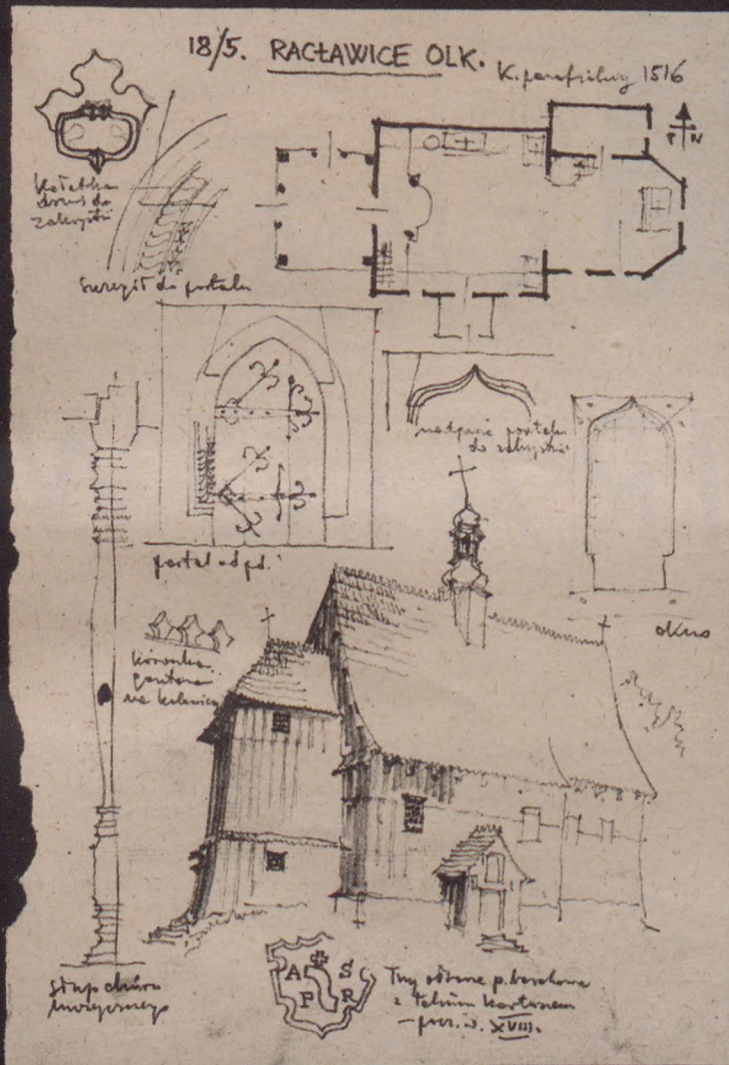 18/5. RACŁAWICE OLK.
K. parafialny 1516
N
Kołatka
drzwi do
zakrystii
do portalu
nadproże portalu
do zakrystii
portal od pd.
okno
koronka
gontowa
na kalenicy
słup chóru
muzycznego
A Ś
P R
Trzy obrazy p. barokowe
z takim kartuszem
XVIII.